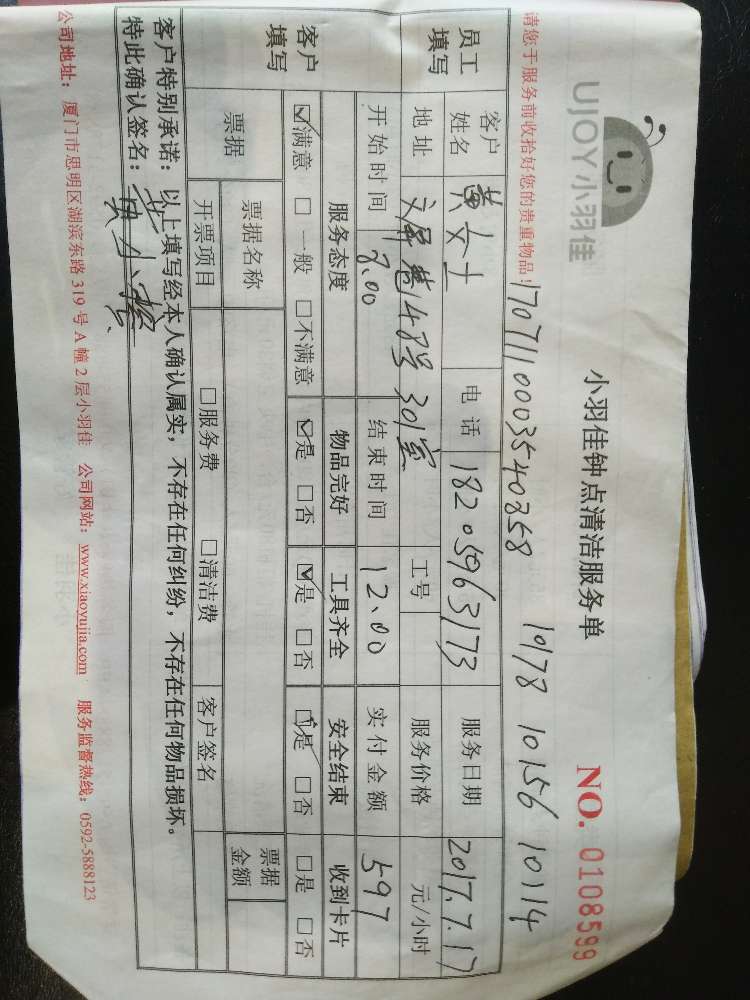 UJOY小羽佳
小羽佳钟点清洁服务单
NO. 0108599
请您于服务前收拾好您的贵重物品！
1707110003540358 10178 10156 10114
员工填写 客户姓名 黄女士 电话 18205963173 服务日期 2017.7.17
地址 文屏巷148号301室 工号 服务价格 元/小时
开始时间 8.00 结束时间 12.00 实付金额 597
客户填写 服务态度 物品完好 工具齐全 安全结束 收到卡片
☑满意 □一般 □不满意 ☑是 □否 ☑是 □否 ☑是 □否 □是 □否
票据 票据名称 票据金额
开票项目 □服务费 □清洁费 客户签名
客户特别承诺：以上填写经本人确认属实，不存在任何纠纷，不存在任何物品损坏。
特此确认签名：
公司地址：厦门市思明区湖滨东路319号A幢2层小羽佳 公司网站：www.xiaoyujia.com 服务监督热线：0592-5888123